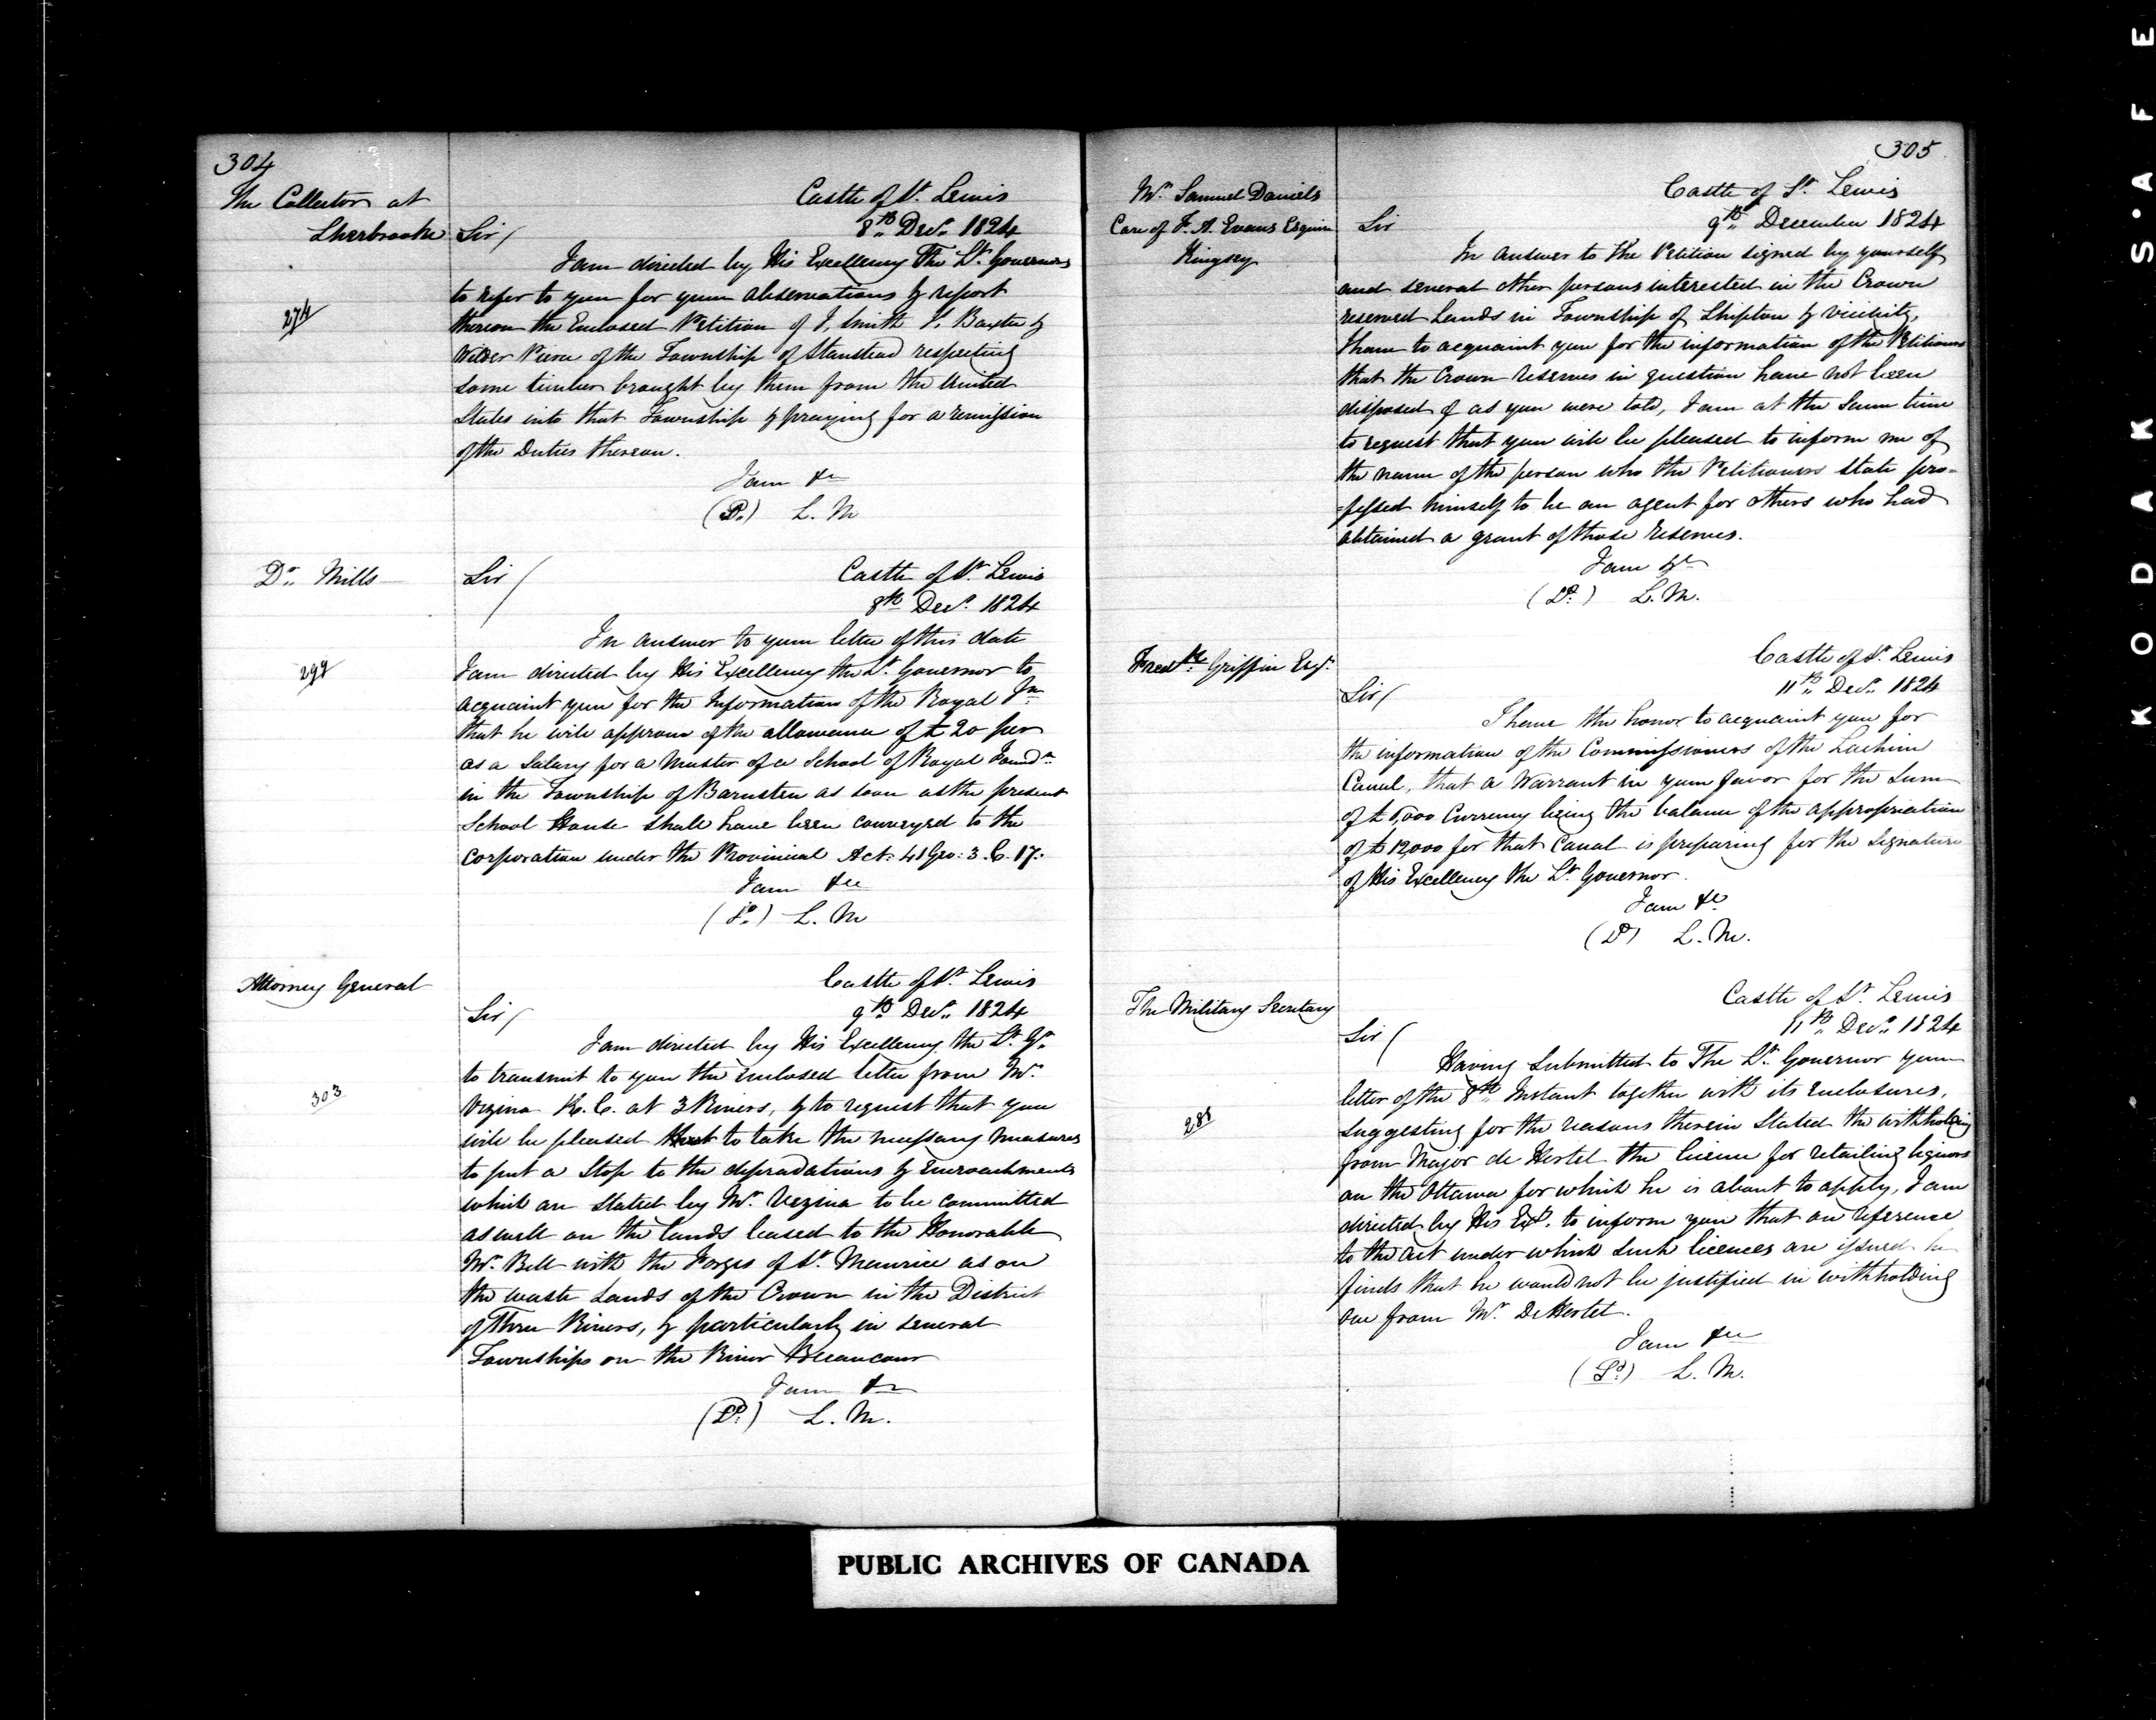 304
The Collector at
Sherbrooke
274
Castle of St. Lewis
8th Decr. 1824
Sir/
I am directed by His Excellency The Lt. Governor
to refer to you for your observations & report
thereon the Enclosed Petition of J. Smith P. Baxter &
Wilder Pierce of the Township of Stanstead respecting
some timber brought by them from the United
States into that Township & praying for a remission
of the Duties thereon.
I am &c
L. M
Dr. Mills
299
Sir/
Castle of St. Lewis
8th Decr. 1824
In answer to your letter of this date
I am directed by His Excellency the Lt. Governor to
acquaint you for the Information of the Royal Jn
that he will approve of the allowance of £20 per
as a Salary for a Master of a School of Royal Foundn
in the Township of Barnston as soon as the present
School House shall have been conveyed to the
Corporation under the Provincial Act: 41 Geo: 3. C. 17:
I am &c
L. M
Attorney General
303
Castle of St. Lewis
9th Decr. 1824
Sir/
I am directed by His Excellency the Lt. Gr.
to transmit to you the enclosed letter from Mr.
Vezina K. C. at 3 Rivers, & to request that you
will be pleased to take the necessary measures
to put a Stop to the depradations & Encroachments
which are Stated by Mr. Vezina to be committed
as well on the lands leased to the Honorable
Mr. Bell with the Forges of St. Maurice as on
the waste Lands of the Crown in the District
of Three Rivers, & particularly in several
Townships on the River Becancour
I am &c
L. M.
305
Mr. Samuel Daniels
Care of F. A. Evans Esquire
Kingsey
Castle of St. Lewis
9th December 1824
Sir
In answer to the Petition signed by yourself
and several other persons interested in the Crown
reserved Lands in Township of Shipton & vicinity,
I have to acquaint you for the information of the Petitioners
that the Crown reserves in question have not been
disposed of as you were told, I am at the same time
to request that you will be pleased to inform me of
the name of the person who the Petitioners state pro=
=fessed himself to be an agent for others who had
obtained a grant of those reserves.
I am &c
L. M.
Fredk. Griffin Esqr.
Castle of St. Lewis
11th Decr. 1824
Sir/
I have the honor to acquaint you for
the information of the Commissioners of the Lachine
Canal, that a Warrant in your favor for the Sum
of £ 6,000 Currency being the balance of the appropriation
of £ 12,000 for that Canal is preparing for the signature
of His Excellency the Lt. Governor.
I am &c
L. M.
The Military Secretary
288
Castle of St. Lewis
11th Decr. 1824
Sir/
Having Submitted to The Lt. Governor your
letter of the 8th Instant together with its Enclosures,
suggesting for the reasons therein Stated the withholding
from Mayor de Hertel the license for retailing liquors
on the Ottawa for which he is about to apply, I am
directed by His Exy. to inform you that on reference
to the Act under which such licences are issued he
finds that he would not be justified in withholding
one from Mr. De Hertel.
I am &c
L. M.
PUBLIC ARCHIVES OF CANADA
KODAK S·AFE